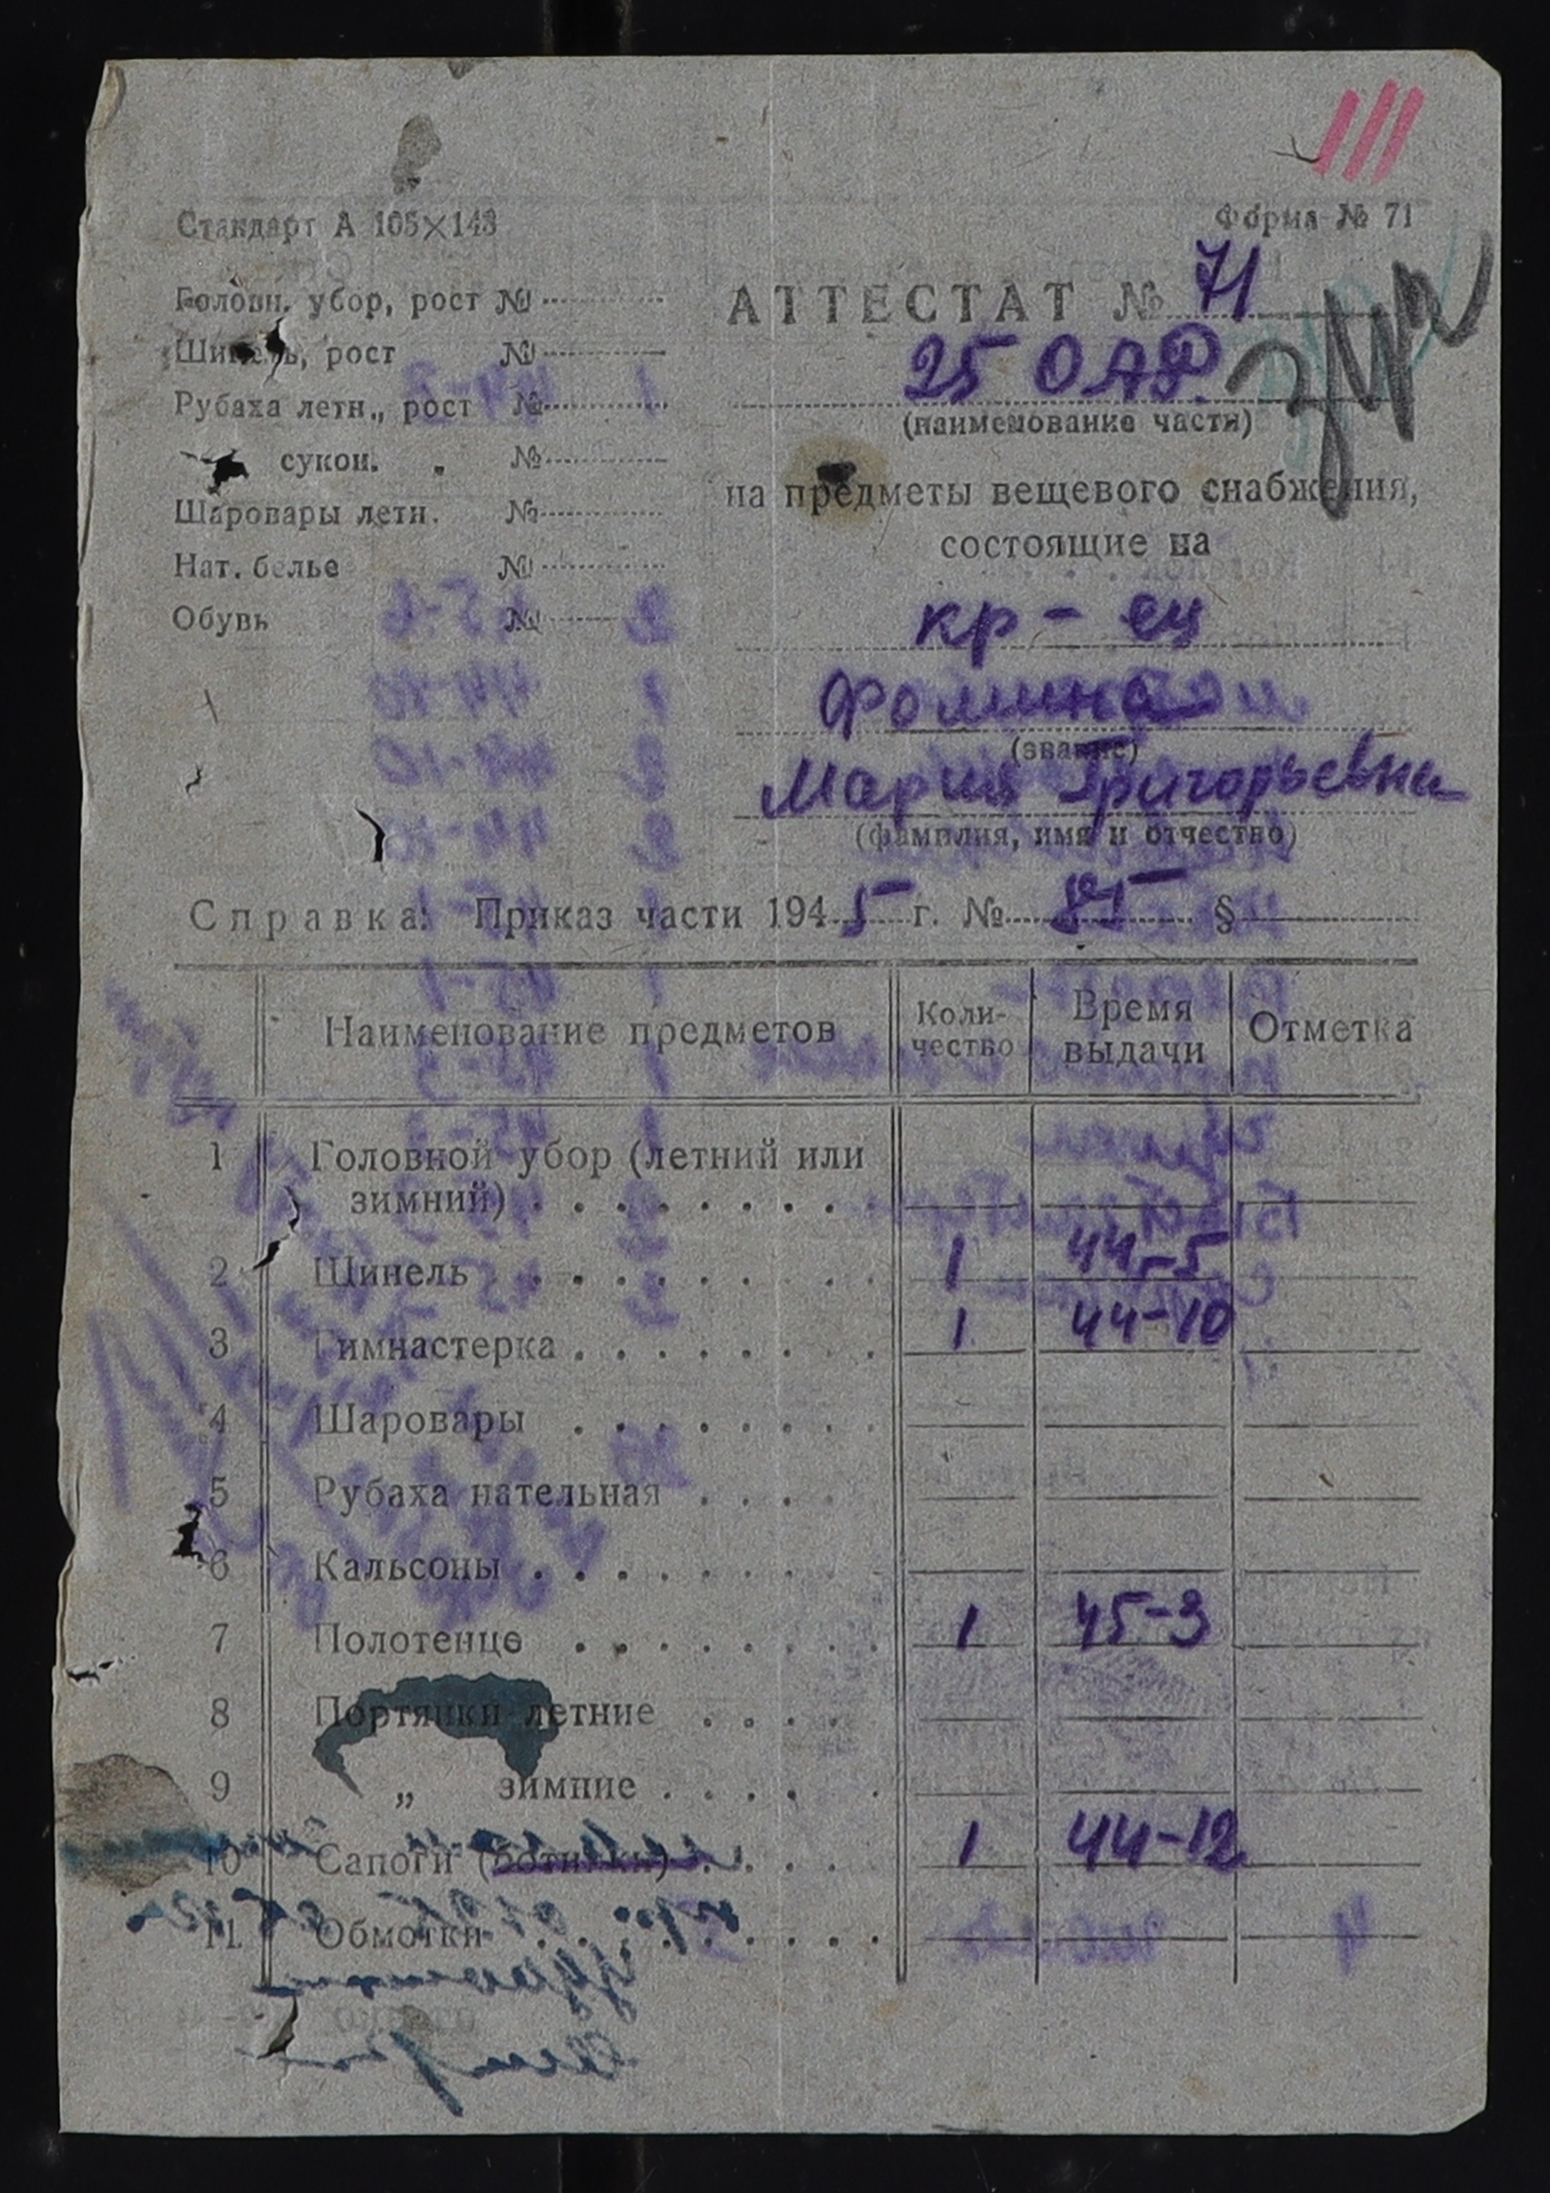 Стандарт А 105×143
Форма № 71
Головн. убор, рост №
Шинель, рост №
Рубаха летн., рост №
" сукон. " №
Шаровары летн. №
Нат. белье №
Обувь №
АТТЕСТАТ № 71
25 ОАР
(наименование части)
на предметы вещевого снабжения,
состоящие на
кр-ец
Фомина
(звание)
Мария Григорьевна
(фамилия, имя и отчество)
Справка: Приказ части 1945 г. № §
Наименование предметов Коли-чество Время выдачи Отметка
1 Головной убор (летний или
зимний)
2 Шинель 1 44-5
3 Гимнастерка 1 44-10
4 Шаровары
5 Рубаха нательная
6 Кальсоны
7 Полотенце 1 45-3
8 Портянки летние
9 " зимние
10 Сапоги (ботинки) 1 44-12
11 Обмотки